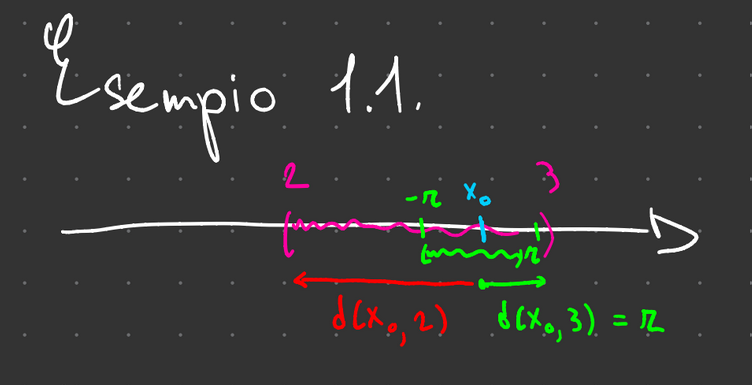 Esempio 1.1.
2 -r x₀ 3
( ( ) r )
d(x₀,2) d(x₀,3) = r